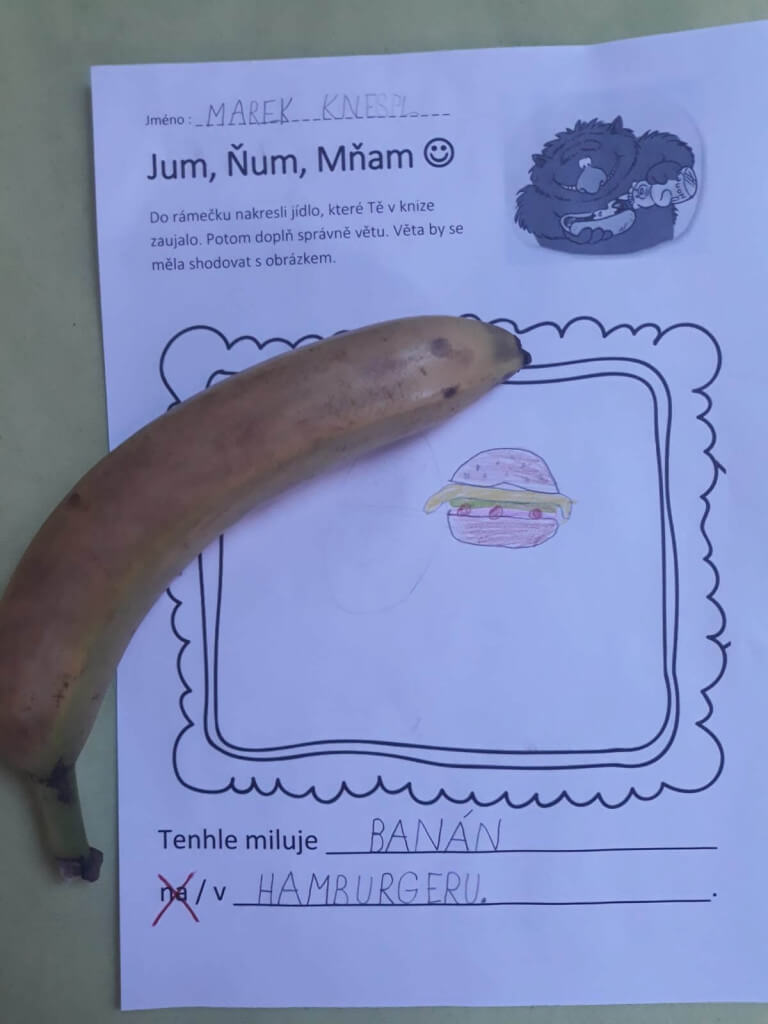 Jméno : MAREK KNESPL
Jum, Ňum, Mňam ☺
Do rámečku nakresli jídlo, které Tě v knize
zaujalo. Potom doplň správně větu. Věta by se
měla shodovat s obrázkem.
Tenhle miluje BANÁN
na / v HAMBURGERU. .